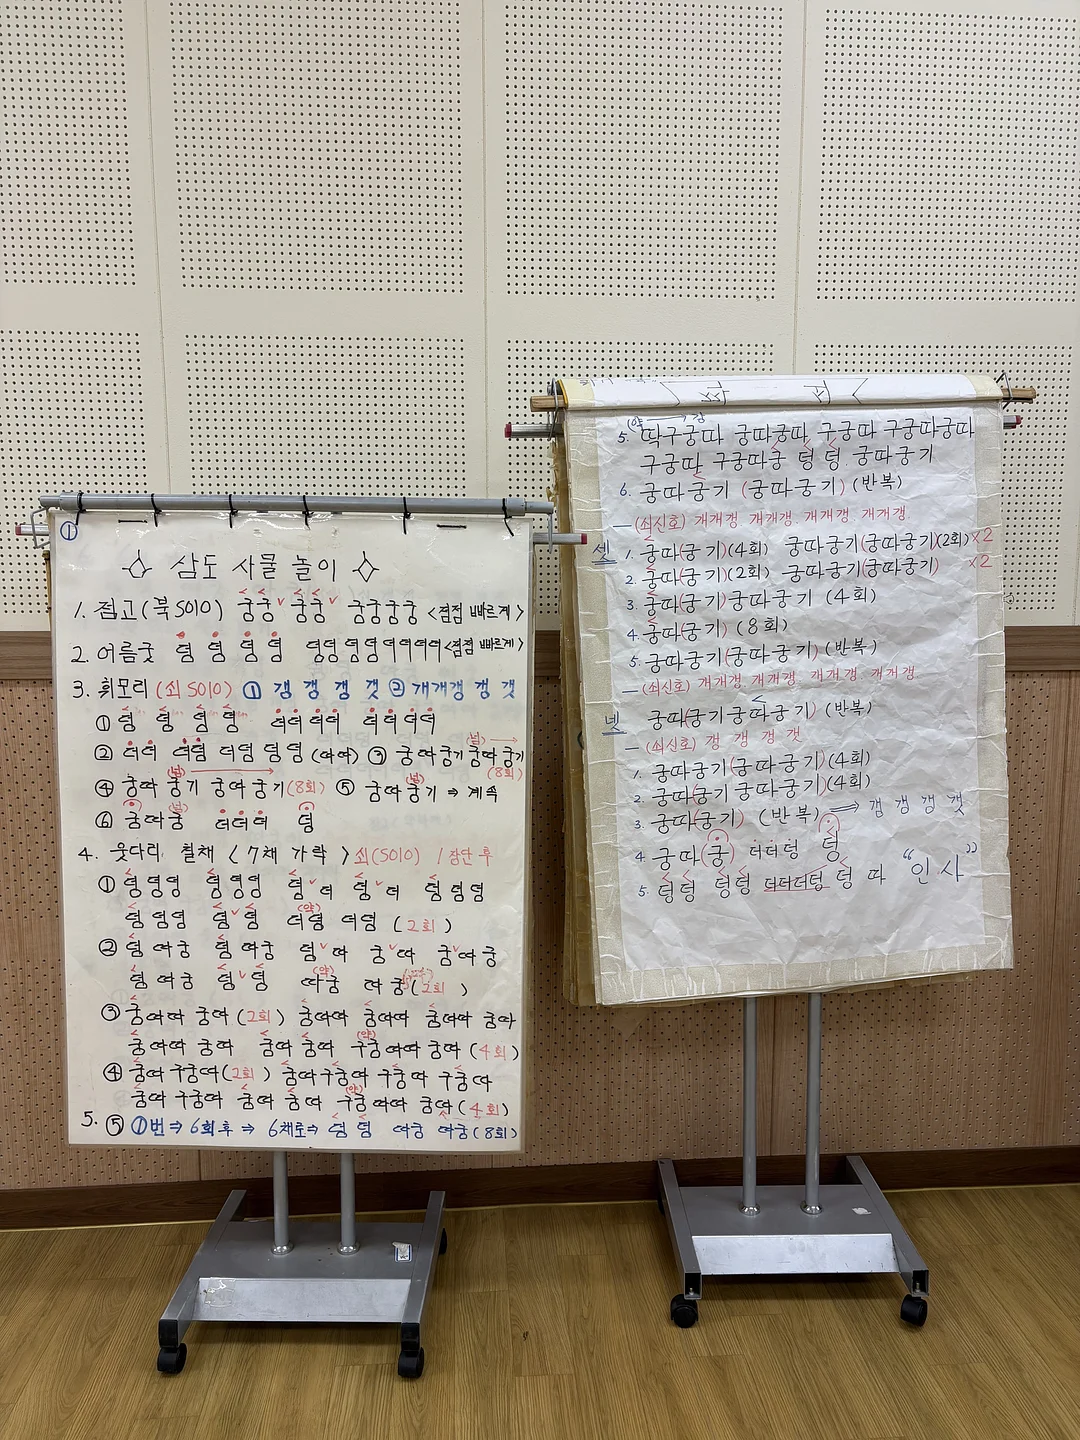 ①
삼도 사물 놀이
1. 점고(북 SOlO) 궁궁 ˅ 궁궁 ˅ 궁궁궁궁 <점점 빠르게>
2. 어름굿 덩 덩 덩 덩 덩덩덩덩더더더더<점점 빠르게>
3. 휘모리 (쇠 SOlO) ① 갱 갱 갱 갯 ② 개개갱 갱 갯
① 덩 덩 덩 덩 더더더더 더더더더
② 더더 더덩 더덩 덩덩 (따따) ③ 궁따궁기 궁따궁기 (넘) (8회)
④ 궁따 궁기 궁따궁기(8회) (넘) ⑤ 궁따궁기 ⇒ 계속 (넘)
⑥ 궁따궁 (넘) 더더더 덩
4. 웃다리 칠채 < 7채 가락 > 쇠(SOlO) 1장단 후
① 덩덩덩 덩덩덩 덩 ˅ 더 덩 ˅ 더 덩덩덩
덩덩덩 덩 ˅ 덩 더덩 (약) 더덩 (2회)
② 덩 따궁 덩 따궁 덩 ˅ 따 궁 ˅ 따 궁 ˅ 따궁
덩 따궁 덩 ˅ 덩 따궁 (약) 따궁 (2회)
③ 궁따따 궁따 (2회) 궁따따 궁따따 궁따따 궁따
궁따따 궁따 궁따 궁따 구궁따따 (약) 궁따 (4회)
④ 궁따 구궁따(2회) 궁따구궁따 구궁따 구궁따
궁따 구궁따 궁따 궁따 구궁따따 (약) 궁따 (4회)
5. ⑤ ①번 ⇒ 6회 후 ⇒ 6채로 ⇒ 덩 덩 따궁 따궁 (8회)
(약 → 강
5. 딱구궁따 궁따궁따 구궁따 구궁따궁따
구궁따 구궁따궁 덩 덩 궁따궁기
6. 궁따궁기 (궁따궁기) (반복)
— (쇠신호) 개개갱 개개갱 개개갱 개개갱
셋 1. 궁따(궁기)(4회) 궁따궁기(궁따궁기)(2회)×2
2. 궁따(궁기)(2회) 궁따궁기(궁따궁기) ×2
3. 궁따(궁기)궁따궁기 (4회)
4. 궁따(궁기) (8회)
5. 궁따궁기(궁따궁기) (반복)
— (쇠신호) 개개갱 개개갱 개개갱 개개갱
넷 궁따(궁기궁따궁기) (반복)
— (쇠신호) 갱 갱 갱 갯
1. 궁따궁기(궁따궁기)(4회)
2. 궁따(궁기궁따궁기)(4회)
3. 궁따(궁기) (반복) ⇒ 갱 갱 갱 갯
4 궁따(궁) 더더덩 덩
5. 덩덩 덩덩 더더더덩 덩 따 “인사”